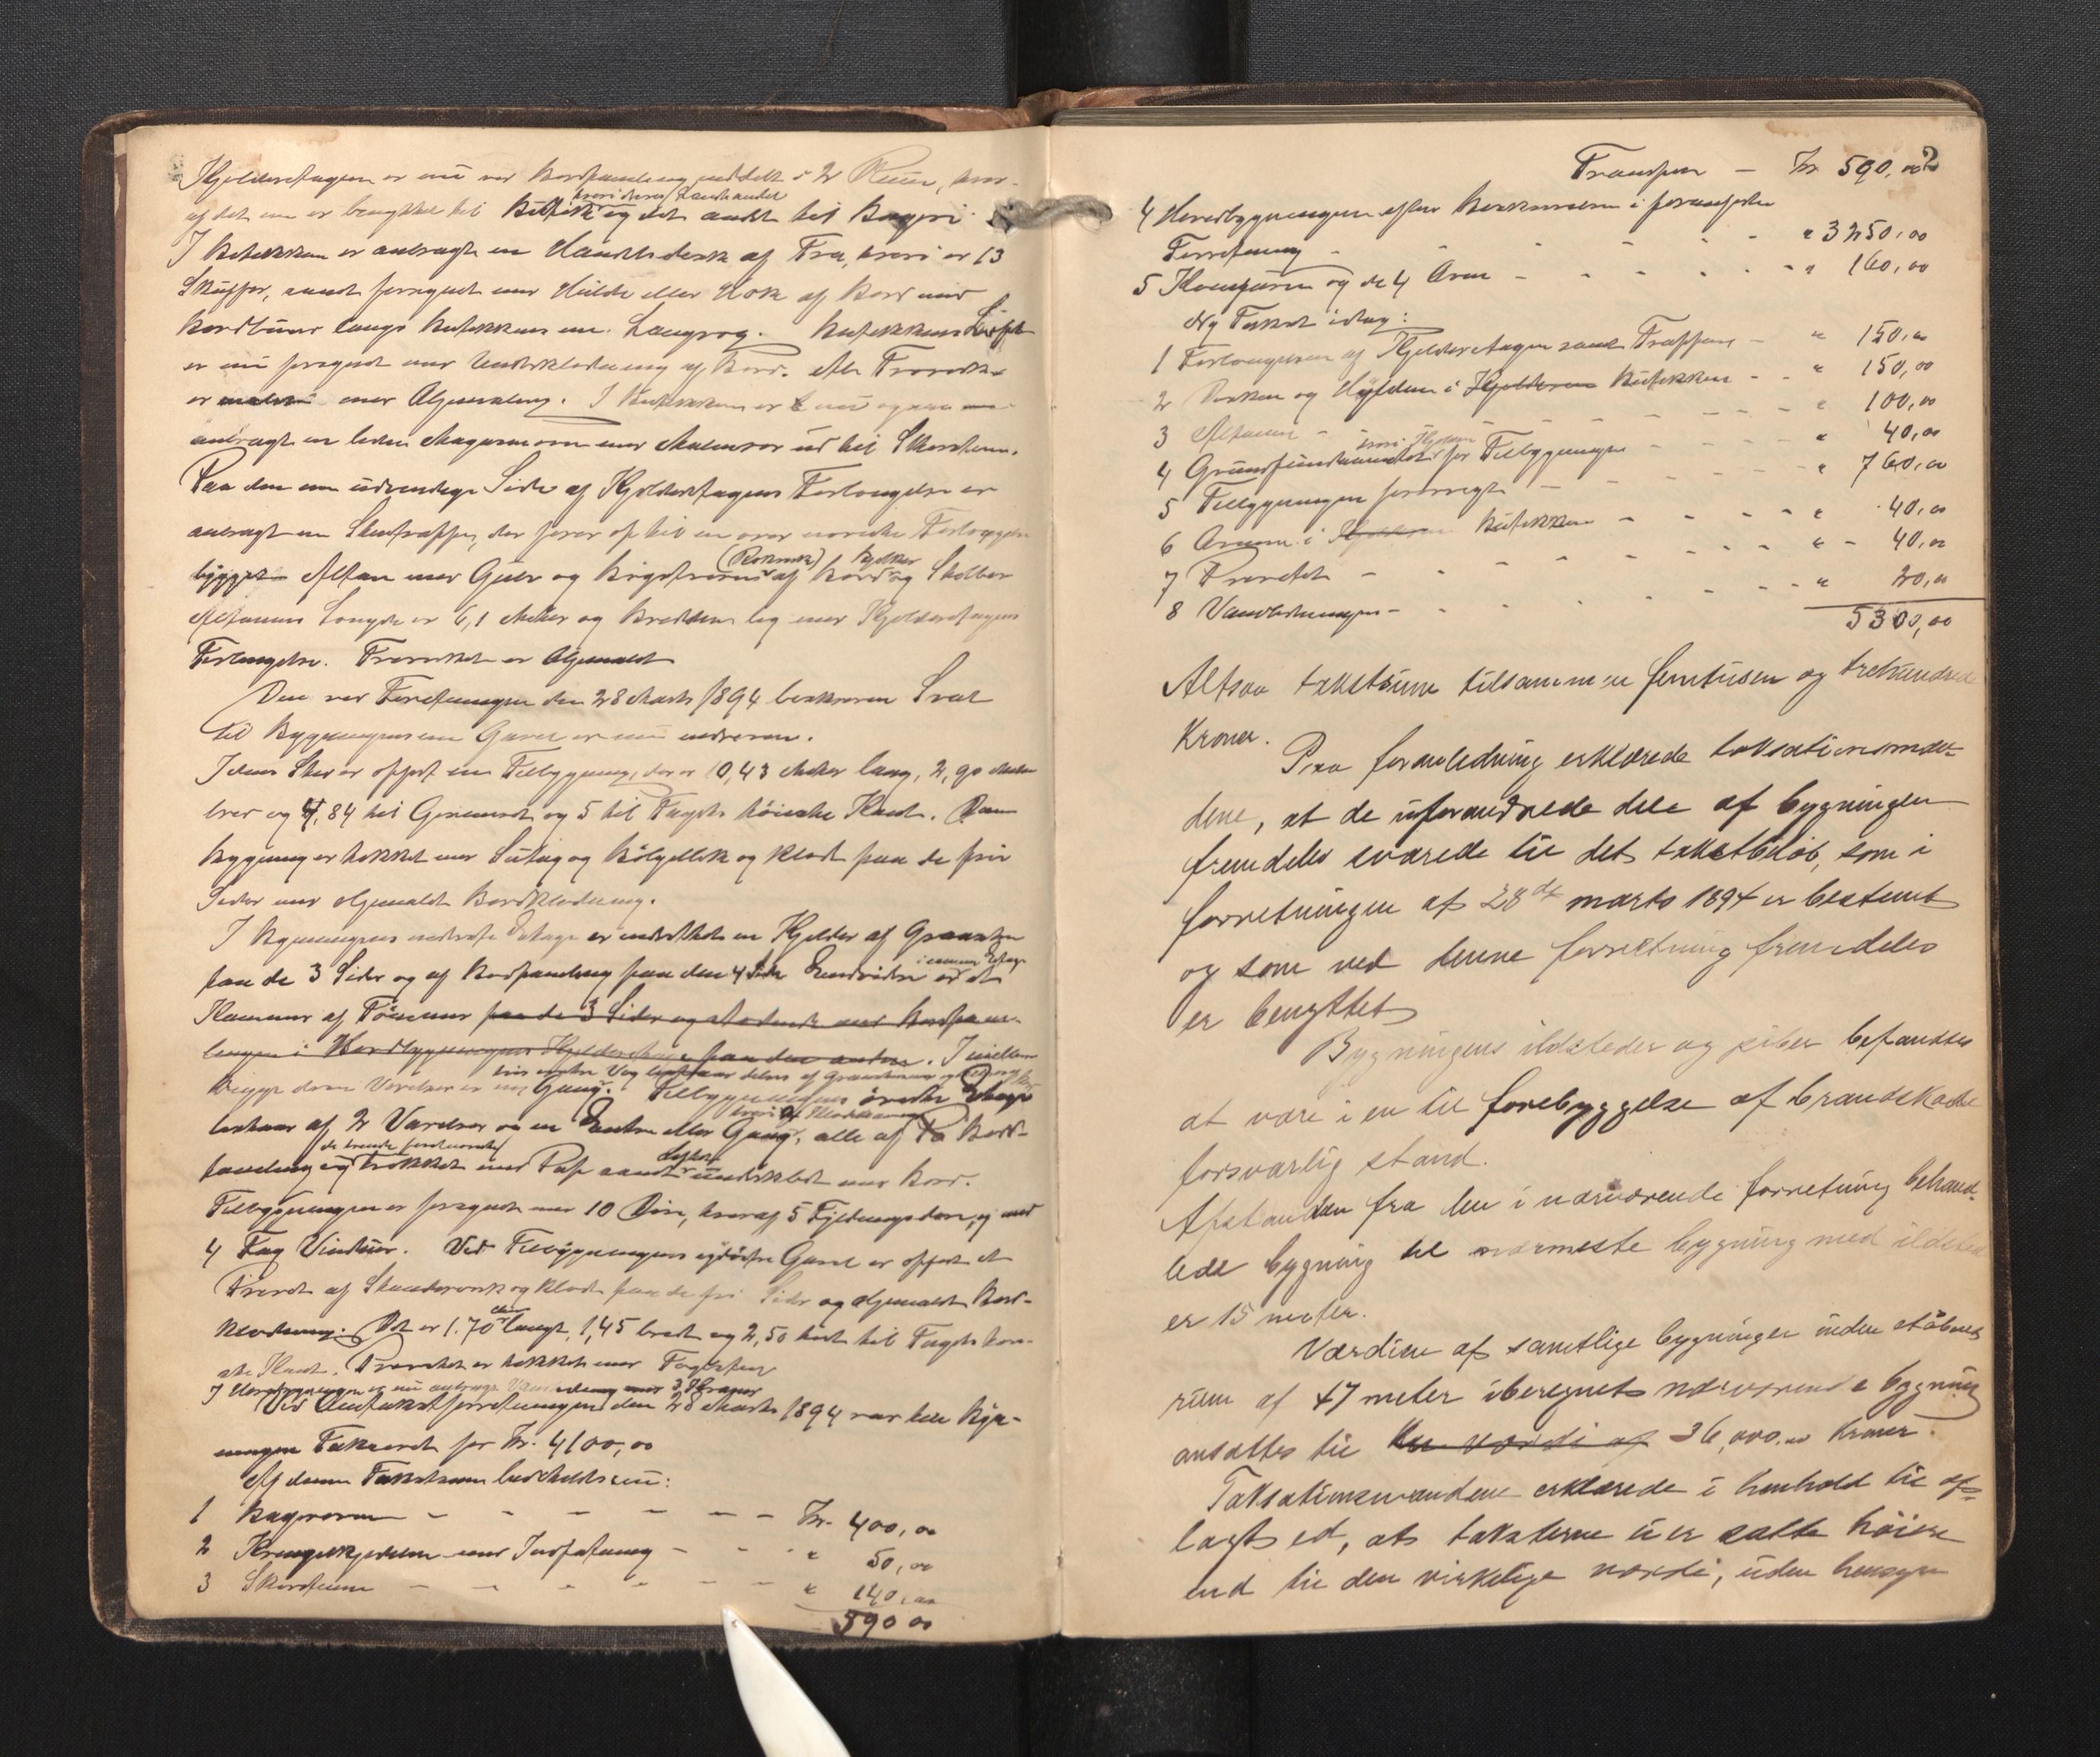 Kjelderetagen er nu ved Bordpaneling inddelt i 2 Rum, hvor-
af det ene er benyttet til Butik hvori drives Landhandel og det andet til Bageri.
I Butikken er anbragt en Handelsdesk af Træ, hvori er 13
Skuffer, samt forsynet med Hylde eller Rek af Bord med
Bordbund langs Butikkens ene Langvæg. Butikkens Loft
er nu forsynet med Underklædning af Bord. Alt Træverk
er malet med Oljemaling. I Butikken er nu ogsaa
anbragt en liden Magasinovn med Malmrør ud til Skorstenen.
Paa den ene udvendige Side af Kjelderetagens Forlængelse er
anbragt en Stentrappe, der fører op til en over nævnte Forlængelse
bygget Altan med Gulv og Brystværn (Rekverk) af Bord og Stolper
Altanens Længde er 6,1 Meter og Bredden lig med Kjelderetagens
Forlængelse. Træverket er Oljemalt
Den ved Forretningen den 28 Marts 1894 beskrevne Sval
til Bygningens ene Gavel er nu nedreven.
I dens Sted er opført en Tilbygning, der er 10,43 Meter lang, 2,90 Meter
bred og 4,84 til Gesimset og 5 til Tagets høieste Kant. Denne
Bygning er tækket med Sutag og Bølgeblik og klædt paa de frie
Sider med oljemalt Bordklædning.
I Bygningens nederste Etage er indrettet en Kjelder af Graasten
paa de 3 Sider og af Bordpaneling paa den 4 Side Endvidere er i samme Etage et
Kammer af Tømmer paa de 3 Sider og
. I mellem
begge disse Værelser er en Gang. Tilbygningens øverste Etage
bestaar af 2 Værelser og en Entre eller Gang, alle af Bord-
paneling og trukket med Pap samt Loftet underklædt med Bord.
Tilbygningen er forsynet med 10 Døre, hvoraf 5 Fyldingsdøre, og med
4 Fag Vinduer. Ved Tilbygningens Gavel er opført et
Privet af Stenderverk og klædt paa de fri Sider og oljemalt Bord-
klædning. Det er 1.70 Meter langt, 1,45 bredt og 2,50 høit til Tagets høie-
ste Kant. Privetet er tækket med Tagsten
I Hovedbygningen er nu anbragt Vandledning med 3 Kraner
Ved Omtakstforretningen den 28 Marts 1894 var hele Byg-
ningen Takseret for Kr. 4100,00
Af denne Takstsum bibeholdtes nu:
1 Bagerovnen - - - - - - Kr. 400,00
2 Kringlekjedelen med Indfatning - - - " 50,00
3 Skorstenen - - - - - - " 140,00
590 00
2
Transport - Kr 590,00
4 Hovedbygningen efter Beskrivelsen i foranførte
Forretning - - - - - - " 3250,00
5 Komfuren og de 4 Ovne - - - - - " 160,00
Ny Takst idag:
1 Forlængelsen af Kjelderetagen samt Trappen - " 150,00
2 Disken og Hylden i Kjelderen Butikken - - " 150,00
3 Altanen - - - - - - " 100,00
4 Grundfundamentet hvori Kjelder for Tilbygningen - - - " 40,00
5 Tilbygningen forøvrigt - - - - - " 760,00
6 Ovnen i Kjelderen Butikken - - - - " 40,00
7 Privetet - - - - - - " - 40,00
8 Vandledningen - - - - - - " 20,00
5300,00
Altsaa takstsum tilsammen femtusen og trehundrede
Kroner.
Paa foranledning erklærede taksationsmæn-
dene, at de uforandrede dele af bygningen
fremdeles svarede til det takstbeløb, som i
forretningen af 28de marts 1894 er bestemt
og som ved denne forretning fremdeles
er benyttet
Bygningens ildsteder og piber befandtes
at være i en til forebyggelse af brandskade
forsvarlig stand.
Afstanden fra den i nærværende forretning behand-
lede bygning til nærmeste bygning med ildsted
er 15 meter.
Værdien af samtlige bygninger inden et åbent
rum af 47 meter iberegnet nærværende bygning
ansattes til en værdi af 36,000.00 Kroner.
Taksationsmændene erklærede i henhold til af-
lagt ed, at taksterne ei er satte høiere
end til den virkelige værdi, uden hensyn